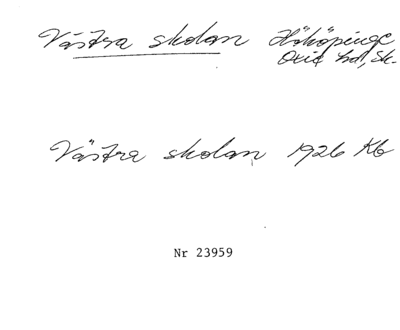 Västra skolan Hököpinge
Oxie hd, Sk.
Västra skolan 1926 Kb
Nr 23959